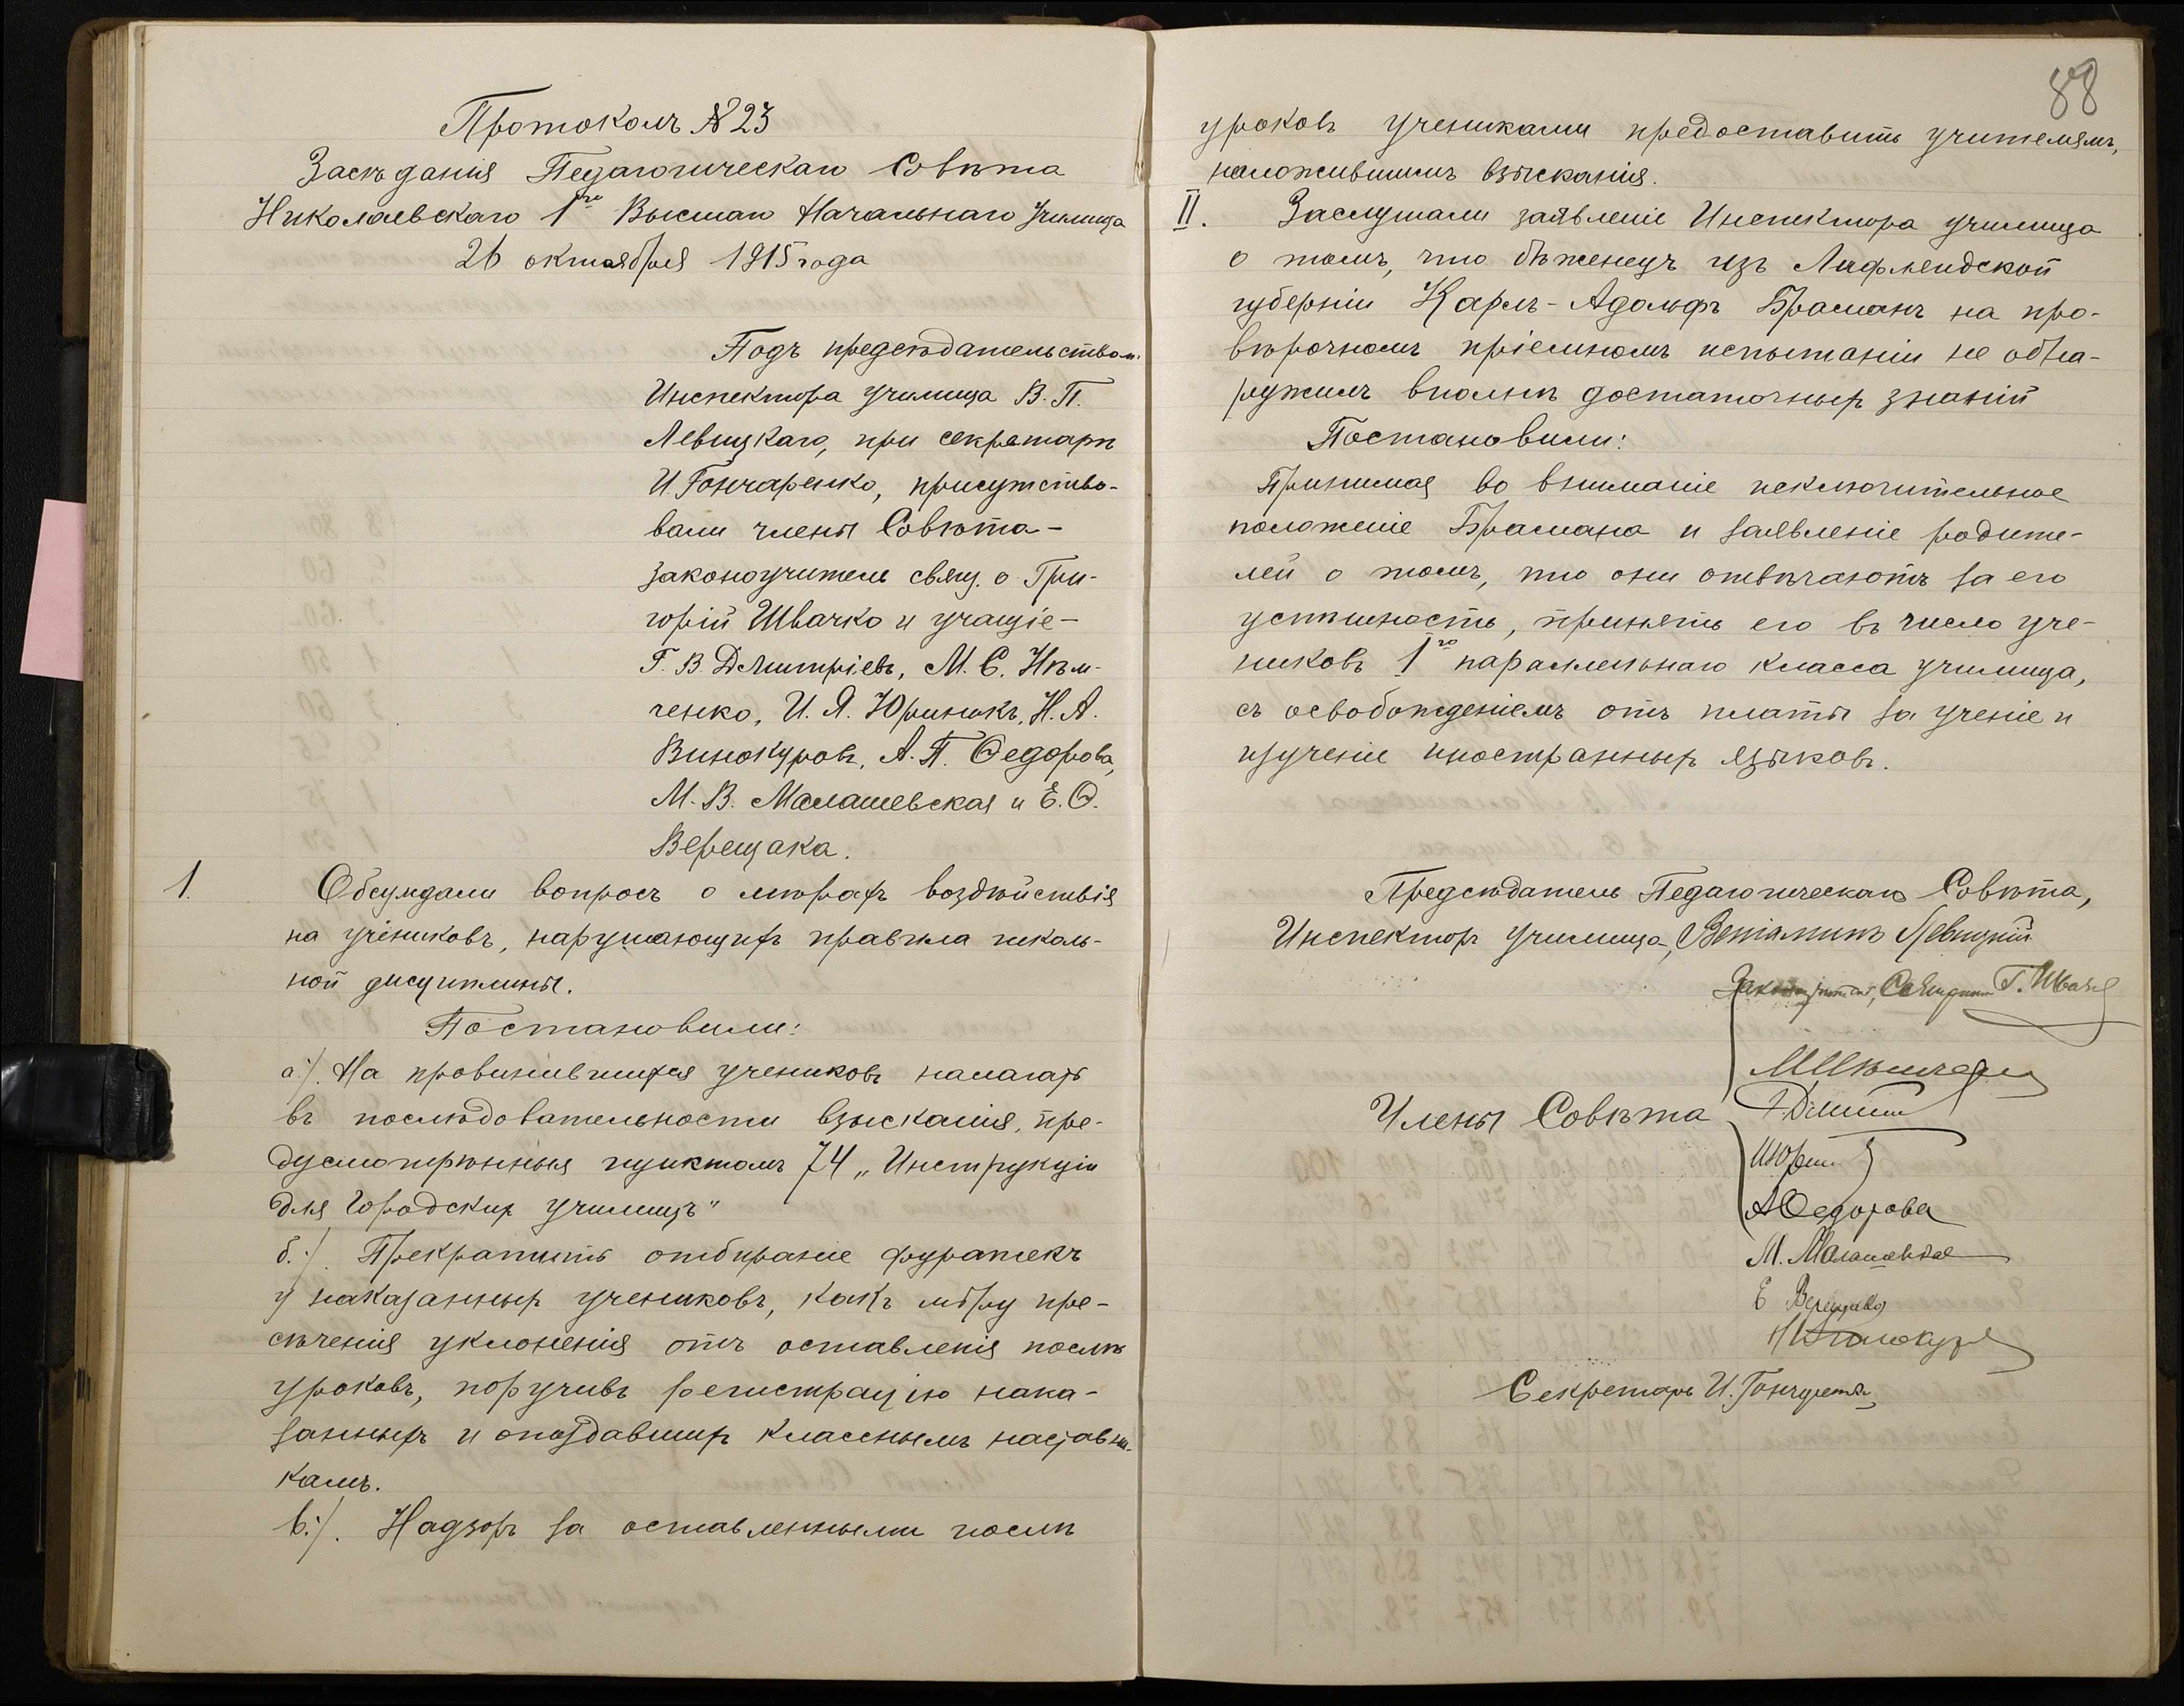 Протоколъ № 23
Засѣданія Педагогическаго Совѣта
Николаевскаго 1го Высшаго Начальнаго Училища
26 октября 1915 года
Подъ предсѣдательствомъ
Инспектора училища В. П.
Левицкаго, при секретарѣ
И. Гончаренко, присутство-
вали члены Совѣта -
законоучитель свящ. о Гри-
горій Швачко и учащіе -
Г. В. Дмитріевъ, М. С. Нѣм-
ченко, И. Я. Юринокъ, Н. А.
Винокуровъ, А. П. Ѳедорова,
М. В. Малашевская и Е. Ѳ.
Верещака.
1. Обсуждали вопросъ о мѣрахъ воздѣйствія
на учениковъ, нарушающихъ правила школь-
ной дисциплины.
Постановили:
а). На провинившихся учениковъ налагать
въ послѣдовательности взысканія, пре-
дусмотрѣнныя пунктомъ 74 „Инструкціи
для городскихъ училищъ"
б). Прекратить отбираніе фуражекъ
у наказанныхъ учениковъ, какъ мѣру пре-
сѣченія уклоненія отъ оставленія послѣ
уроковъ, поручивъ регистрацію нака-
занныхъ и опоздавшихъ класснымъ наставни-
камъ.
в). Надзоръ за оставленными послѣ
88
уроковъ учениками предоставить учителямъ,
наложившимъ взысканія.
II. Заслушали заявленіе Инспектора училища
о томъ, что бѣженецъ изъ Лифляндской
губерніи Карлъ-Адольфъ Браманъ на про-
вѣрочномъ пріемномъ испытаніи не обна-
ружилъ вполнѣ достаточныхъ знаній
Постановили:
Принимая во вниманіе исключительное
положеніе Брамана и заявленіе родите-
лей о томъ, что они отвѣчаютъ за его
успѣшность, принять его въ число уче-
никовъ 1го параллельнаго класса училища,
съ освобожденіемъ отъ платы за ученіе и
изученіе иностранныхъ языковъ.
Предсѣдатель Педагогическаго Совѣта,
Инспекторъ училища, Веніаминъ Левицкій
Законоучитель, Священникъ Г. Швачко
Члены Совѣта
АѲедорова
М. Малашевская
Е Верещака
Секретарь И. Гончаренко